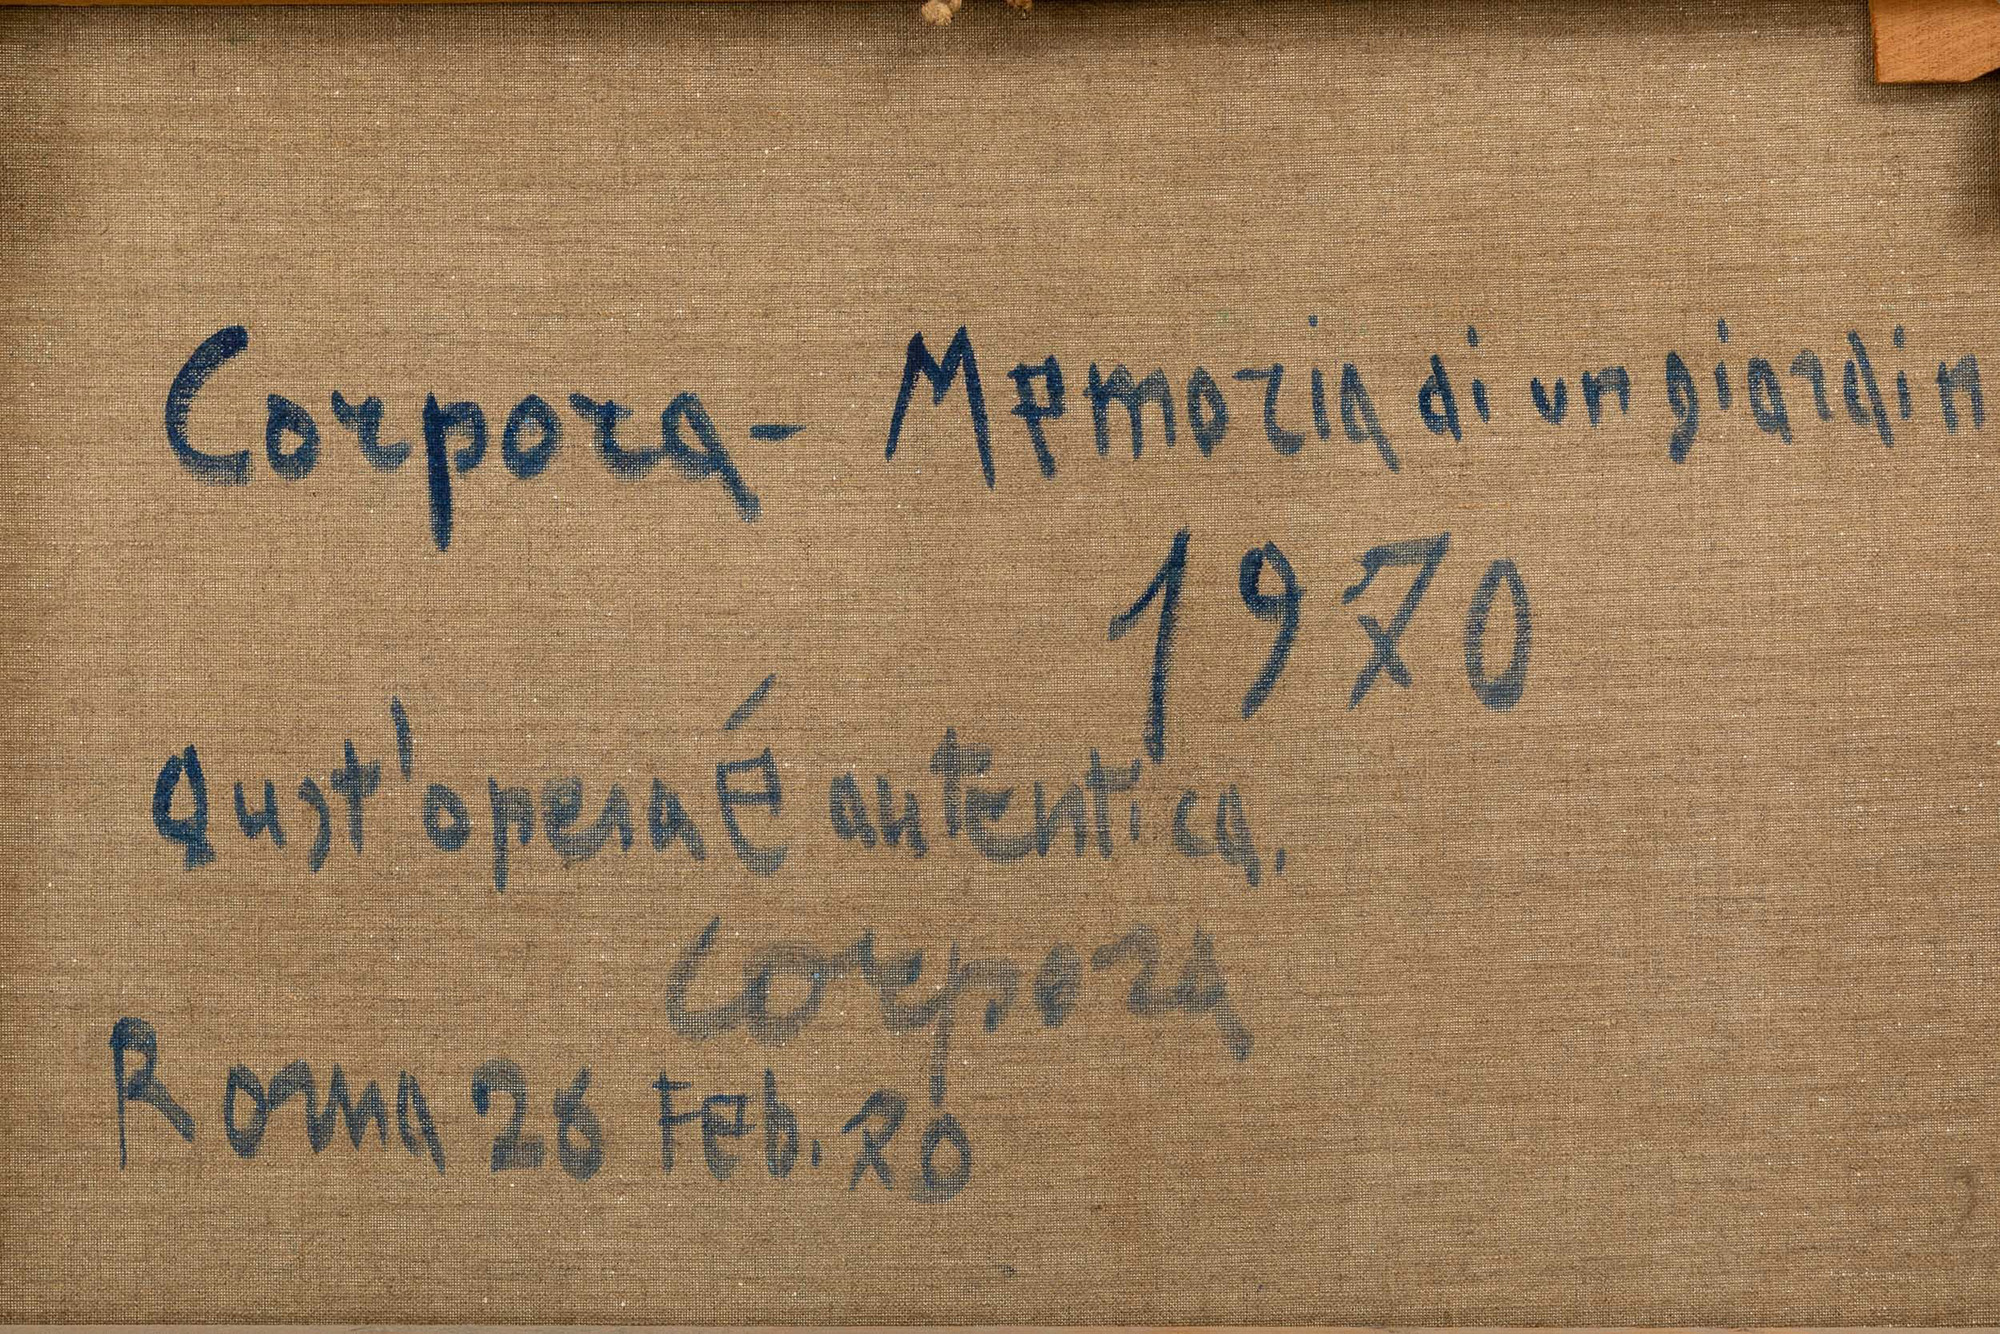 Corpora - Memoria di un giardin
1970
Qust'opera é autentica.
Corpora
Roma 26 Feb. 70